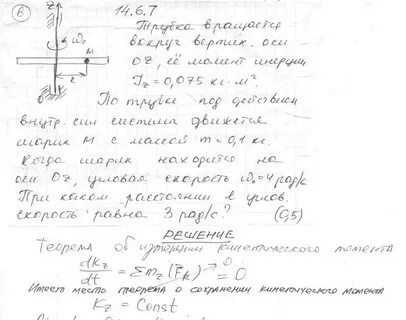 6
14.6.7
Трубка вращается
вокруг вертик. оси
OZ, её момент инерции
Jz = 0,075 кг·м².
По трубке под действием
внутр. сил системы движется
шарик М с массой m = 0,1 кг.
Когда шарик находится на
оси Oz, угловая скорость ω₀ = 4 рад/с
При каком расстоянии l углов.
скорость равна 3 рад/с? (0,5)
РЕШЕНИЕ
Теорема об изменении кинетического момента
dKz/dt = Σmz(F̄k) → 0 = 0
Имеет место теорема о сохранении кинетического момента
Kz = Const
z
ω₀
М
l